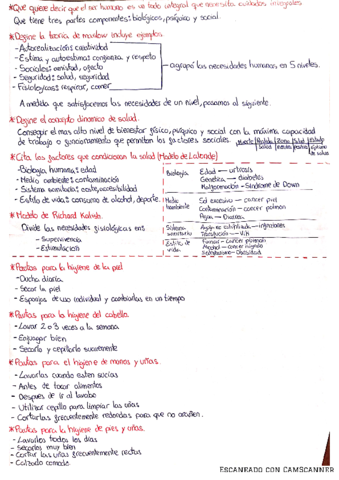 *¿Qué quiere decir que el ser humano es un todo integral que necesita cuidados integrales
Que tiene tres partes componentes: biológicos, psíquica y social.
*Define la teoría de maslow incluye ejemplos.
- Autorrealización: creatividad
- Estima y autoestima: confianza y respeto
- Sociales: amistad, afecto
- Seguridad: salud, seguridad
- Fisiológicas: respirar, comer
agrupó las necesidades humanas en 5 niveles.
A medida que satisfacemos las necesidades de un nivel, pasamos al siguiente.
*Define el concepto dinamico de salud.
Conseguir el mas alto nivel de bienestar físico, psíquico y social con la máxima capacidad
de trabajo o funcionamiento que permiten los factores sociales.
*Cita los factores que condicionan la salud (Modelo de Lalonde)
- Biología humana: edad
- Medio ambiente: contaminación
- Sistema sanitario: coste, accesibilidad
- Estilo de vida: consumo de alcohol, deporte.
Biología
Edad → artrosis
Genética → diabetes
Malformación - Síndrome de Down
Medio ambiente
Sol excesivo - cancer piel
Contaminación - cancer pulmon
Agua → Diarrea
Sistema sanitario
Estilo de vida
Fumar - cancer pulmon
Alcohol - cancer hígado
Sedentarismo - Obesidad
*Modelo de Richard Kalish.
Divide las necesidades fisiologicas en:
- Supervivencia
- Estimulación
*Pautas para la higiene de la piel
- Ducha diaria
- Secar la piel
- Esponjas de uso individual y cambiarlas en un tiempo
*Pautas para la higiene del cabello.
- Lavar 2 o 3 veces a la semana
- Enjuagar bien
- Secarlo y cepillarlo suavemente
*Pautas para el higiene de manos y uñas.
- Lavarlas cuando esten sucias
- Antes de tocar alimentos
- Despues de ir al lavabo
- Utilizar cepillo para limpiar las uñas
- Cortarlas frecuentemente redondas para que no arañen.
*Pautas para la higiene de pies y uñas.
- Lavarlos todos los días
- Secarlos muy bien
- Cortar las uñas frecuentemente rectas
- Calzado comodo
ESCANEADO CON CAMSCANNER